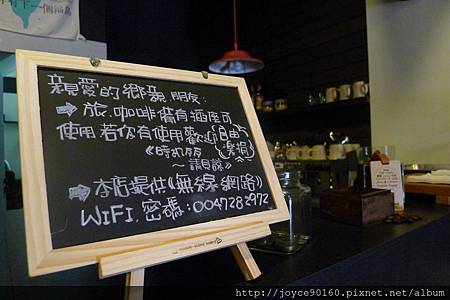 親愛的鄉親朋友:
➡ 旅.咖啡備有插座可
使用 若你有使用歡迎{自由
樂捐}
~請見諒~
➡ 本店提供((無線網路))
WIFI.密碼:0047282972
http://joyce90160.pixnet.net/album